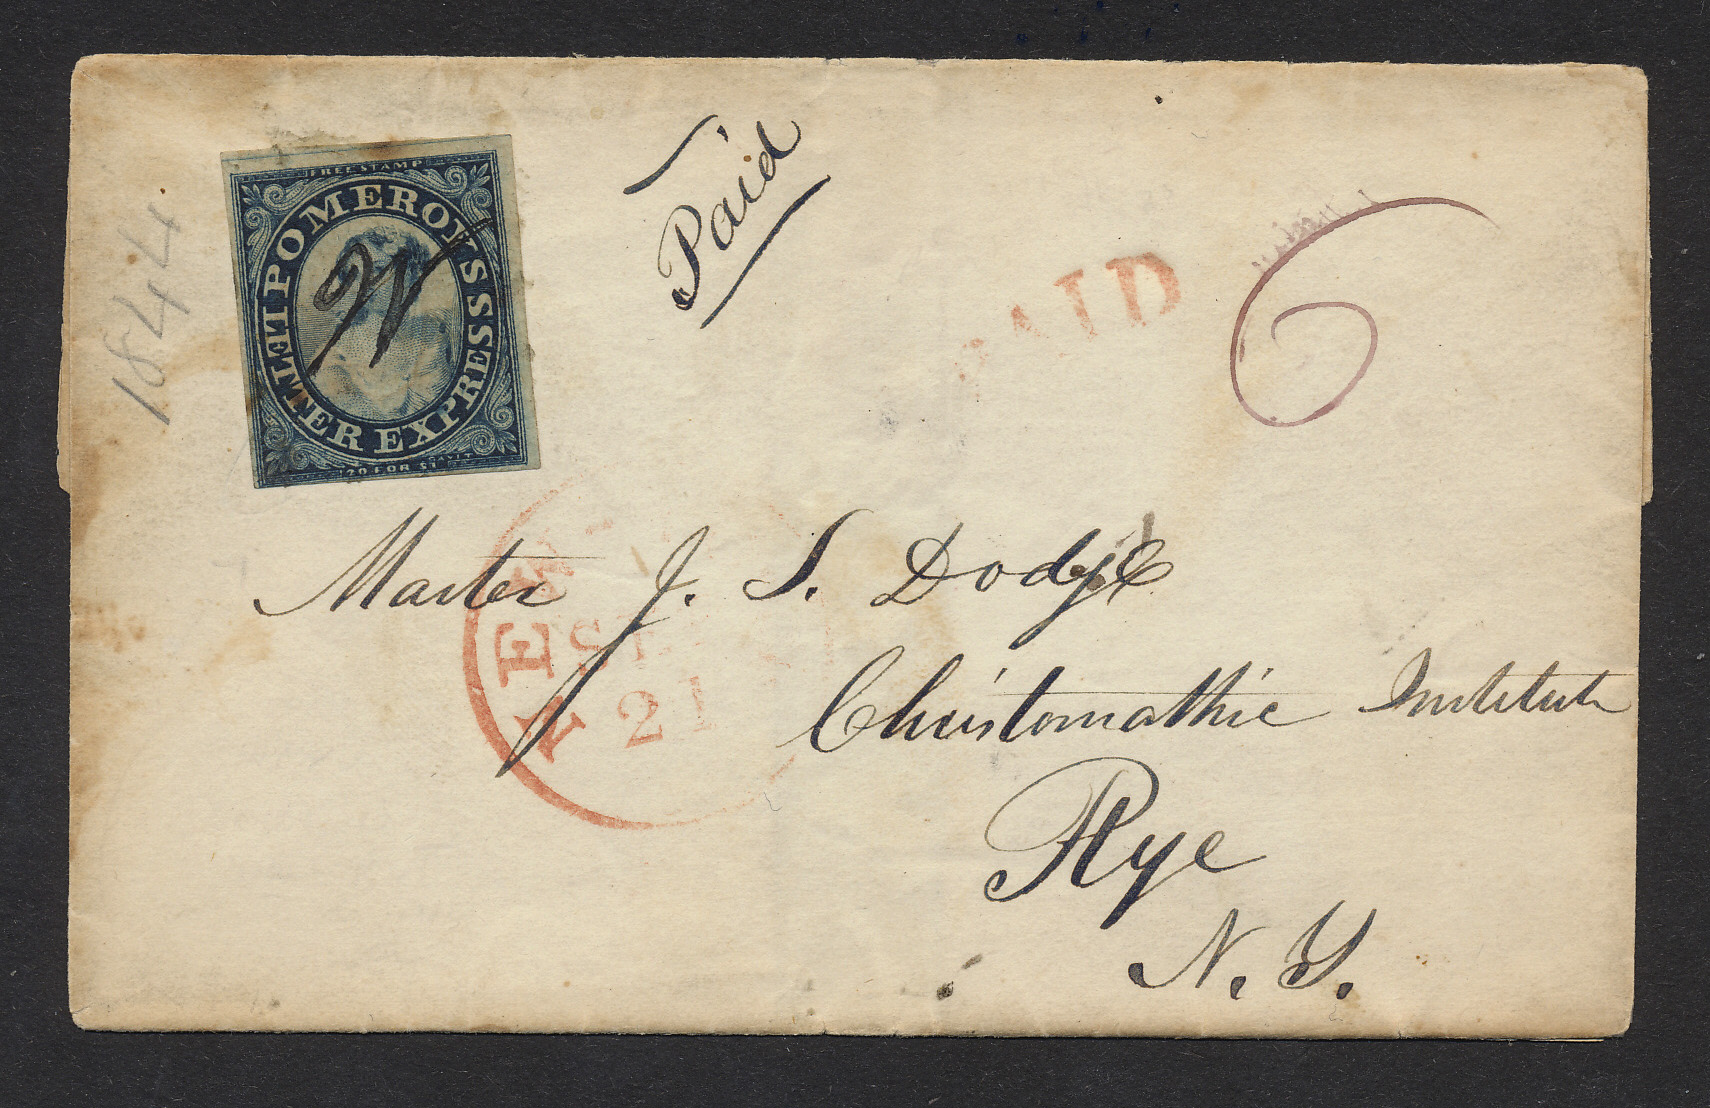 1844
FREE STAMP
POMEROY'S LETTER EXPRESS
20 FOR $1
W
Paid
AID
6
NEW
21
Master J. S. Dodge
Christomathic Institute
Rye
N. Y.